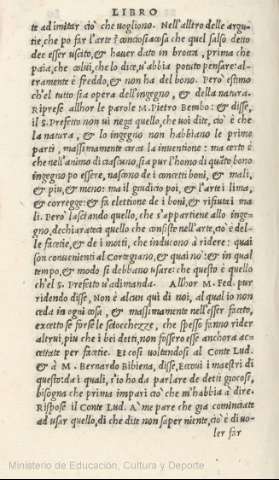 LIBRO
te ad imitar ciò che vogliono. Nell'altro delle argu-
tie, che po far l'arte? conciosia cosa che quel salso detto
dee esser uscito, & hauer dato in brocca, prima che
paia, che colui, che lo dice, n'abbia potuto pensare: al-
tramente è freddo, & non ha del bono. Però estimo
ch'el tutto sia opera dell'ingegno, & della natura.
Riprese allhor le parole M. Pietro Bembo: & disse,
il S. Prefetto non ui nega quello, che uoi dite, ciò è che
la natura, & lo ingegno non habbiano le prime
parti, massimamente circa la inuentione: ma certo è
che nell'animo di ciascuno, sia pur l'homo di quãto bono
ingegno po essere, nascono de i concetti boni, & mali,
& piu, & meno: ma il giudicio poi, & l'arte i lima,
& corregge: & fa elettione de i boni, & rifiuta i ma
li. Però lasciando quello, che s'appartiene allo inge-
gno, dechiarateci quello che consiste nell'arte, ciò è del-
le facetie, & de i motti, che inducono à ridere: quai
son conuenienti al Cortegiano, & quai nò: & in qual
tempo, & modo si debbano usare: che questo è quello
ch'el S. Prefetto u'adimanda. Allhor M. Fed. pur
ridendo disse, Non è alcun quì di noi, al qual io non
ceda in ogni cosa, & massimamente nell'esser faceto,
excetto se forse le sciocchezze, che spesso fanno rider
altrui, piu che i bei detti, non fossero esse anchora ac-
cettate per facetie. Et così uoltandosi al Conte Lud.
& à M. Bernardo Bibiena, disse, Eccoui i maestri di
questo: da i quali, s'io ho da parlare de detti giocosi,
bisogna che prima impari ciò che m'habbia à dire.
Rispose il Conte Lud. A' me pare che già cominciate
ad usar quello, di che dite non saper niente, ciò è di uo-
ler far
Ministerio de Educación, Cultura y Deporte